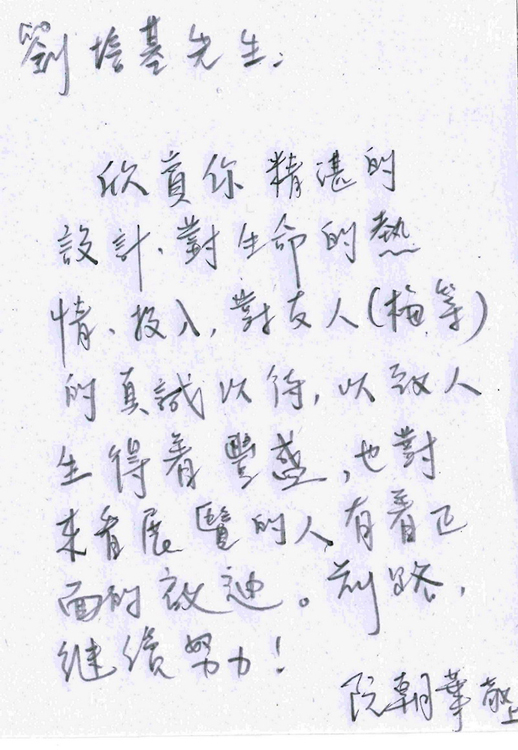 劉培基先生:
欣賞你精湛的
設計、對生命的熱
情、投入,對友人(梅等)
的真誠以待,以致人
生得着豐盛,也對
來看展覽的人有着正
面的啟迪。前路,
继續努力!
阮朝華敬上